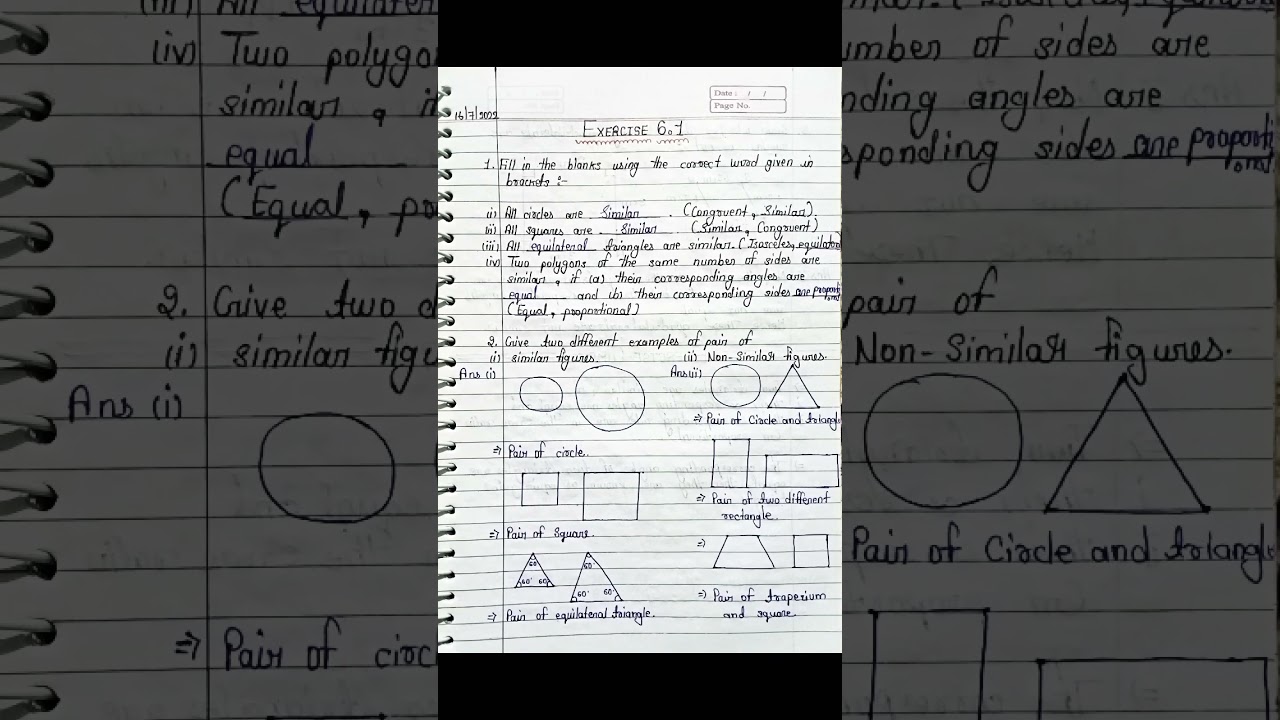 Date : / /
Page No.
16/7/2022
EXERCISE 6.1
1. Fill in the blanks using the correct word given in
brackets :-
(i) All circles are Similar . (Congruent, Similar).
(ii) All squares are Similar . (Similar, Congruent)
(iii) All equilateral triangles are similar. (Isosceles, equilateral
(iv) Two polygons of the same number of sides are
similar, if (a) their corresponding angles are
equal and (b) their corresponding sides are proporti
onal
(Equal, proportional)
2. Give two different examples of pair of
(i) similar figures. (ii) Non-Similar figures.
Ans (i) Ans(ii)
⇒ Pair of Circle and triangle
⇒ Pair of circle.
⇒ Pair of two different
rectangle.
⇒ Pair of Square.
⇒
60° 60° 60° 60° 60° 60°
⇒ Pair of traperium
⇒ Pair of equilateral triangle. and square.